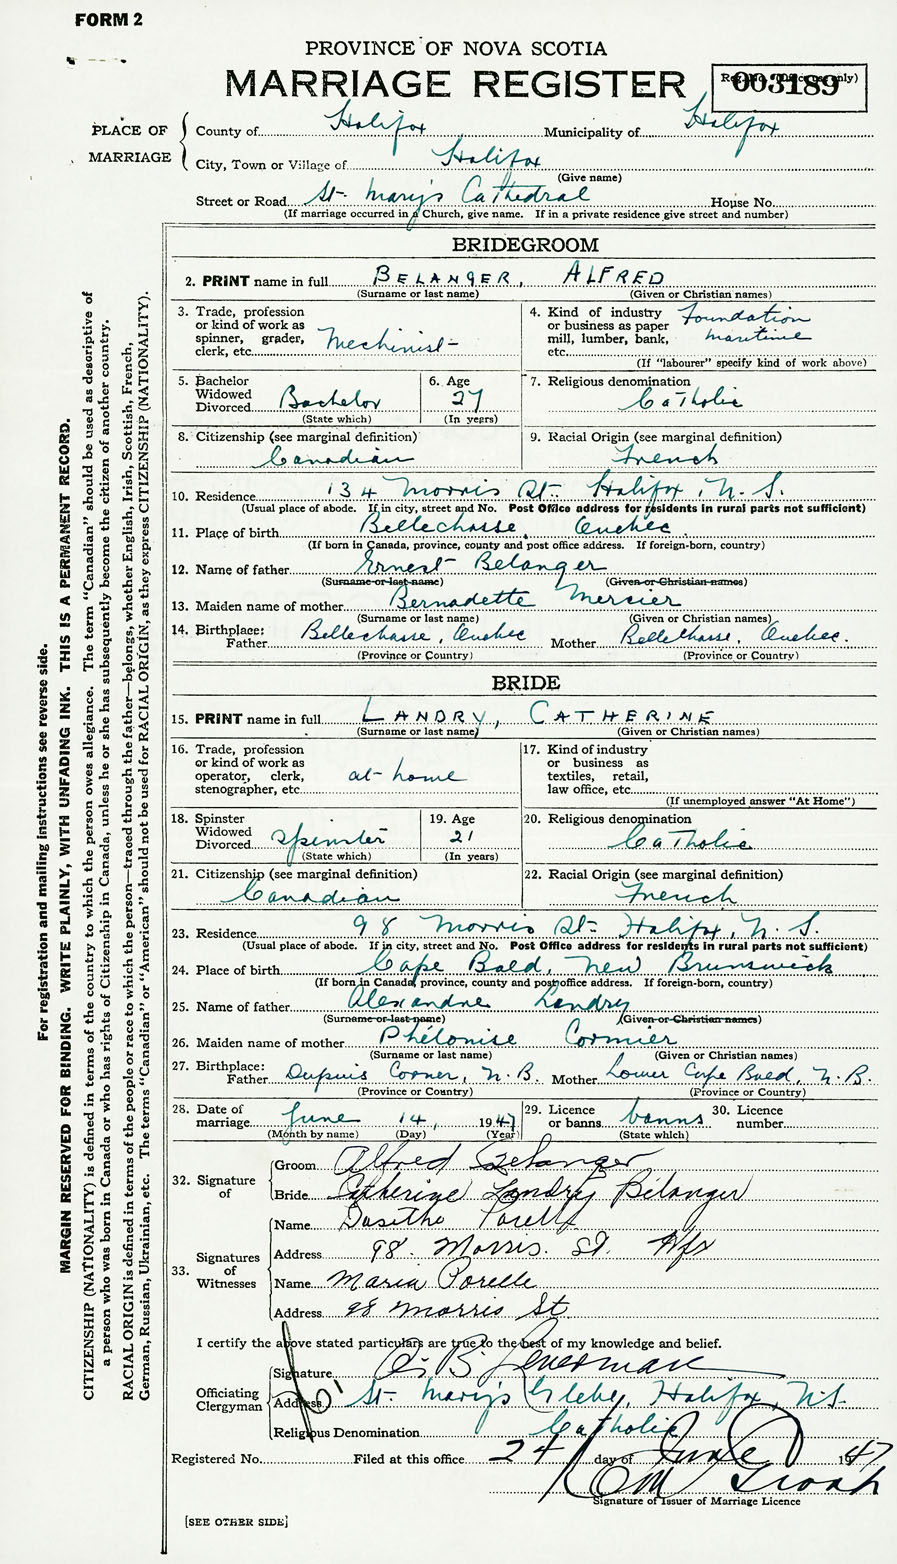 FORM 2
PROVINCE OF NOVA SCOTIA
MARRIAGE REGISTER
Reg. No. (Office use only)
003189
PLACE OF MARRIAGE
County of Halifax Municipality of Halifax
City, Town or Village of Halifax
(Give name)
Street or Road St. Mary's Cathedral House No.
(If marriage occurred in a Church, give name. If in a private residence give street and number)
BRIDEGROOM
2. PRINT name in full BELANGER, ALFRED
(Surname or last name) (Given or Christian names)
3. Trade, profession or kind of work as spinner, grader, clerk, etc. Mechinist
4. Kind of industry or business as paper mill, lumber, bank, etc. Foundation maritime
(If "labourer" specify kind of work above)
5. Bachelor Widowed Divorced Bachelor
(State which)
6. Age 27
(In years)
7. Religious denomination Catholic
8. Citizenship (see marginal definition) Canadian
9. Racial Origin (see marginal definition) French
10. Residence 134 Morris St. Halifax, N.S.
(Usual place of abode. If in city, street and No. Post Office address for residents in rural parts not sufficient)
11. Place of birth Bellechasse, Quebec.
(If born in Canada, province, county and post office address. If foreign-born, country)
12. Name of father Ernest Belanger
(Surname or last name) (Given or Christian names)
13. Maiden name of mother Bernadette Mercier
(Surname or last name) (Given or Christian names)
14. Birthplace: Father Bellechasse, Quebec Mother Bellechasse, Quebec.
(Province or Country) (Province or Country)
BRIDE
15. PRINT name in full LANDRY, CATHERINE
(Surname or last name) (Given or Christian names)
16. Trade, profession or kind of work as operator, clerk, stenographer, etc. at home
17. Kind of industry or business as textiles, retail, law office, etc.
(If unemployed answer "At Home")
18. Spinster Widowed Divorced Spinster
(State which)
19. Age 21
(In years)
20. Religious denomination Catholic
21. Citizenship (see marginal definition) Canadian
22. Racial Origin (see marginal definition) French
23. Residence 98 Morris St. Halifax, N.S.
(Usual place of abode. If in city, street and No. Post Office address for residents in rural parts not sufficient)
24. Place of birth Cape Bald, New Brunswick
(If born in Canada, province, county and post office address. If foreign-born, country)
25. Name of father Alexandre Landry
(Surname or last name) (Given or Christian names)
26. Maiden name of mother Phélonise Cormier
(Surname or last name) (Given or Christian names)
27. Birthplace: Father Dupuis Corner, N.B. Mother Lower Cape Bald, N.B.
(Province or Country) (Province or Country)
28. Date of marriage June 14, 1947
(Month by name) (Day) (Year)
29. Licence or banns banns
(State which)
30. Licence number
32. Signature of
Groom Alfred Belanger
Bride Catherine Landry Bélanger
33. Signatures of Witnesses
Name Dosithe Porelle
Address 98. Morris. St. Hfx
Name Maria Porelle
Address 98 Morris St.
I certify the above stated particulars are true to the best of my knowledge and belief.
Officiating Clergyman
Signature
Address St. Mary's Glebe, Halifax, N.S.
Religious Denomination Catholic
Registered No. Filed at this office 24 day of June 1947
Signature of Issuer of Marriage Licence
[SEE OTHER SIDE]
For registration and mailing instructions see reverse side.
MARGIN RESERVED FOR BINDING. WRITE PLAINLY, WITH UNFADING INK. THIS IS A PERMANENT RECORD.
CITIZENSHIP (NATIONALITY) is defined in terms of the country to which the person owes allegiance. The term "Canadian" should be used as descriptive of
a person who was born in Canada or who has rights of Citizenship in Canada, unless he or she has subsequently become the citizen of another country.
RACIAL ORIGIN is defined in terms of the people or race to which the person—traced through the father—belongs, whether English, Irish, Scottish, French,
German, Russian, Ukrainian, etc. The terms "Canadian" or "American" should not be used for RACIAL ORIGIN, as they express CITIZENSHIP (NATIONALITY).